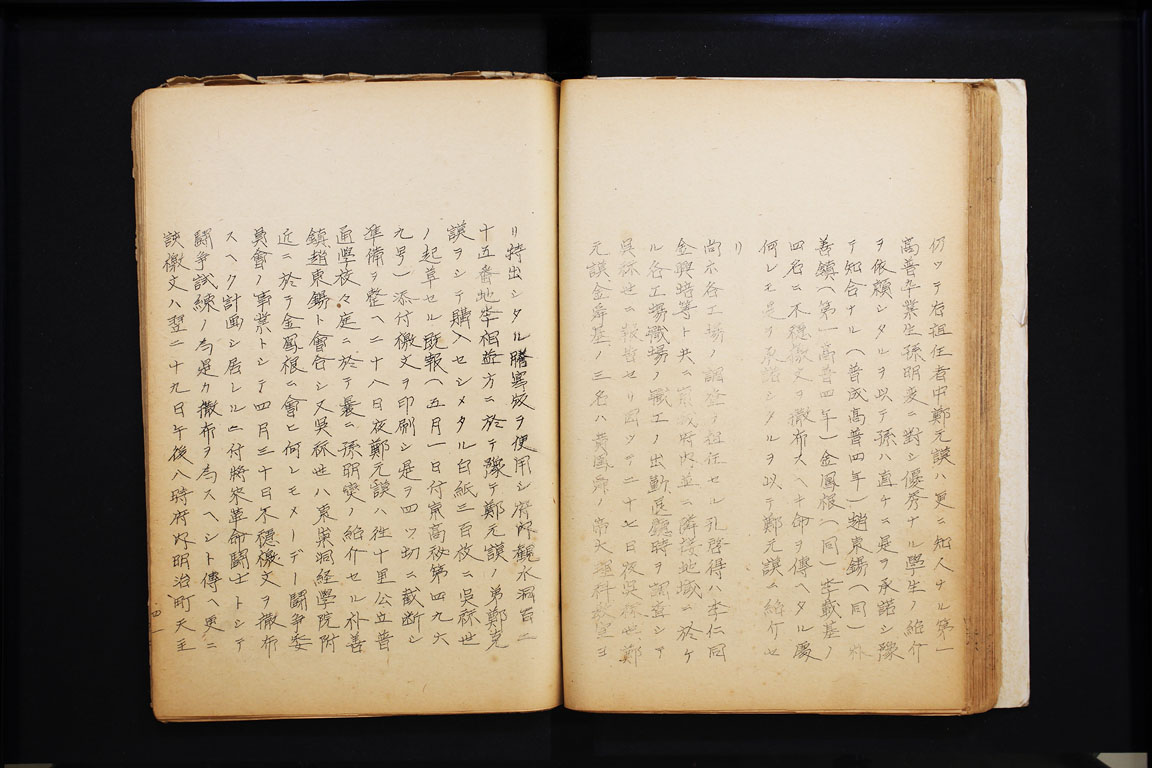 仍ツテ右担任者中鄭元謨ハ更ニ知人ナル第一
高普卒業生孫明奕ニ対シ優秀ナル學生ノ紹介
ヲ依頼シタルヲ以テ孫ハ直ケニ是ヲ承諾シ豫
テ知合ナル(普成高普四年)趙東錫(同)朴
善鎮(第一高普四年)金鳳根(同)李載基ノ
四名ニ不穏檄文ヲ撒布スヘキ命ヲ傳ヘタル處
何レモ是ヲ承諾シタルヲ以テ鄭元謨ニ紹介セ
リ
尚ホ各工場ノ調査ノ担任セル孔啓得ハ李仁同
金興培等ト共ニ京城府内並ニ隣接地域ニ於ケ
ル各工場職場ノ職工ノ出勤退廳時ヲ調査シテ
呉秝世ニ報告セリ因ツテ二十七日夜呉秝世鄭
元謨金舜基ノ三名ハ ノ帝大理科教室ヨ
リ持出シタル謄寫版ヲ使用シ府内觀水洞百二
十五番地李相益方ニ於テ豫テ鄭元謨ノ弟鄭克
謨ヲシテ購入セシメタル白紙三百枚ニ呉秝世
ノ起草セル既報(五月一日付京高秘第四九六
九号)添付檄文ヲ印刷シ是ヲ四ツ切ニ截断シ
準備ヲ整ヘ二十八日夜鄭元謨ハ徃十里公立普
通學校々庭ニ於テ曩ニ孫明奕ノ紹介セル朴善
鎮趙東錫ト會合シ又呉秝世ハ東崇洞経學院附
近ニ於テ金鳳根ニ會ヒ何レモメーデー闘争委
員會ノ事業トシテ四月三十日不穏檄文ヲ撒布
スヘク計画シ居レルニ付将来革命闘士トシテ
闘争試練ノ為是カ撒布ヲ為スヘシト傳ヘ更ニ
該檄文ハ翌二十九日午後八時府内明治町天主